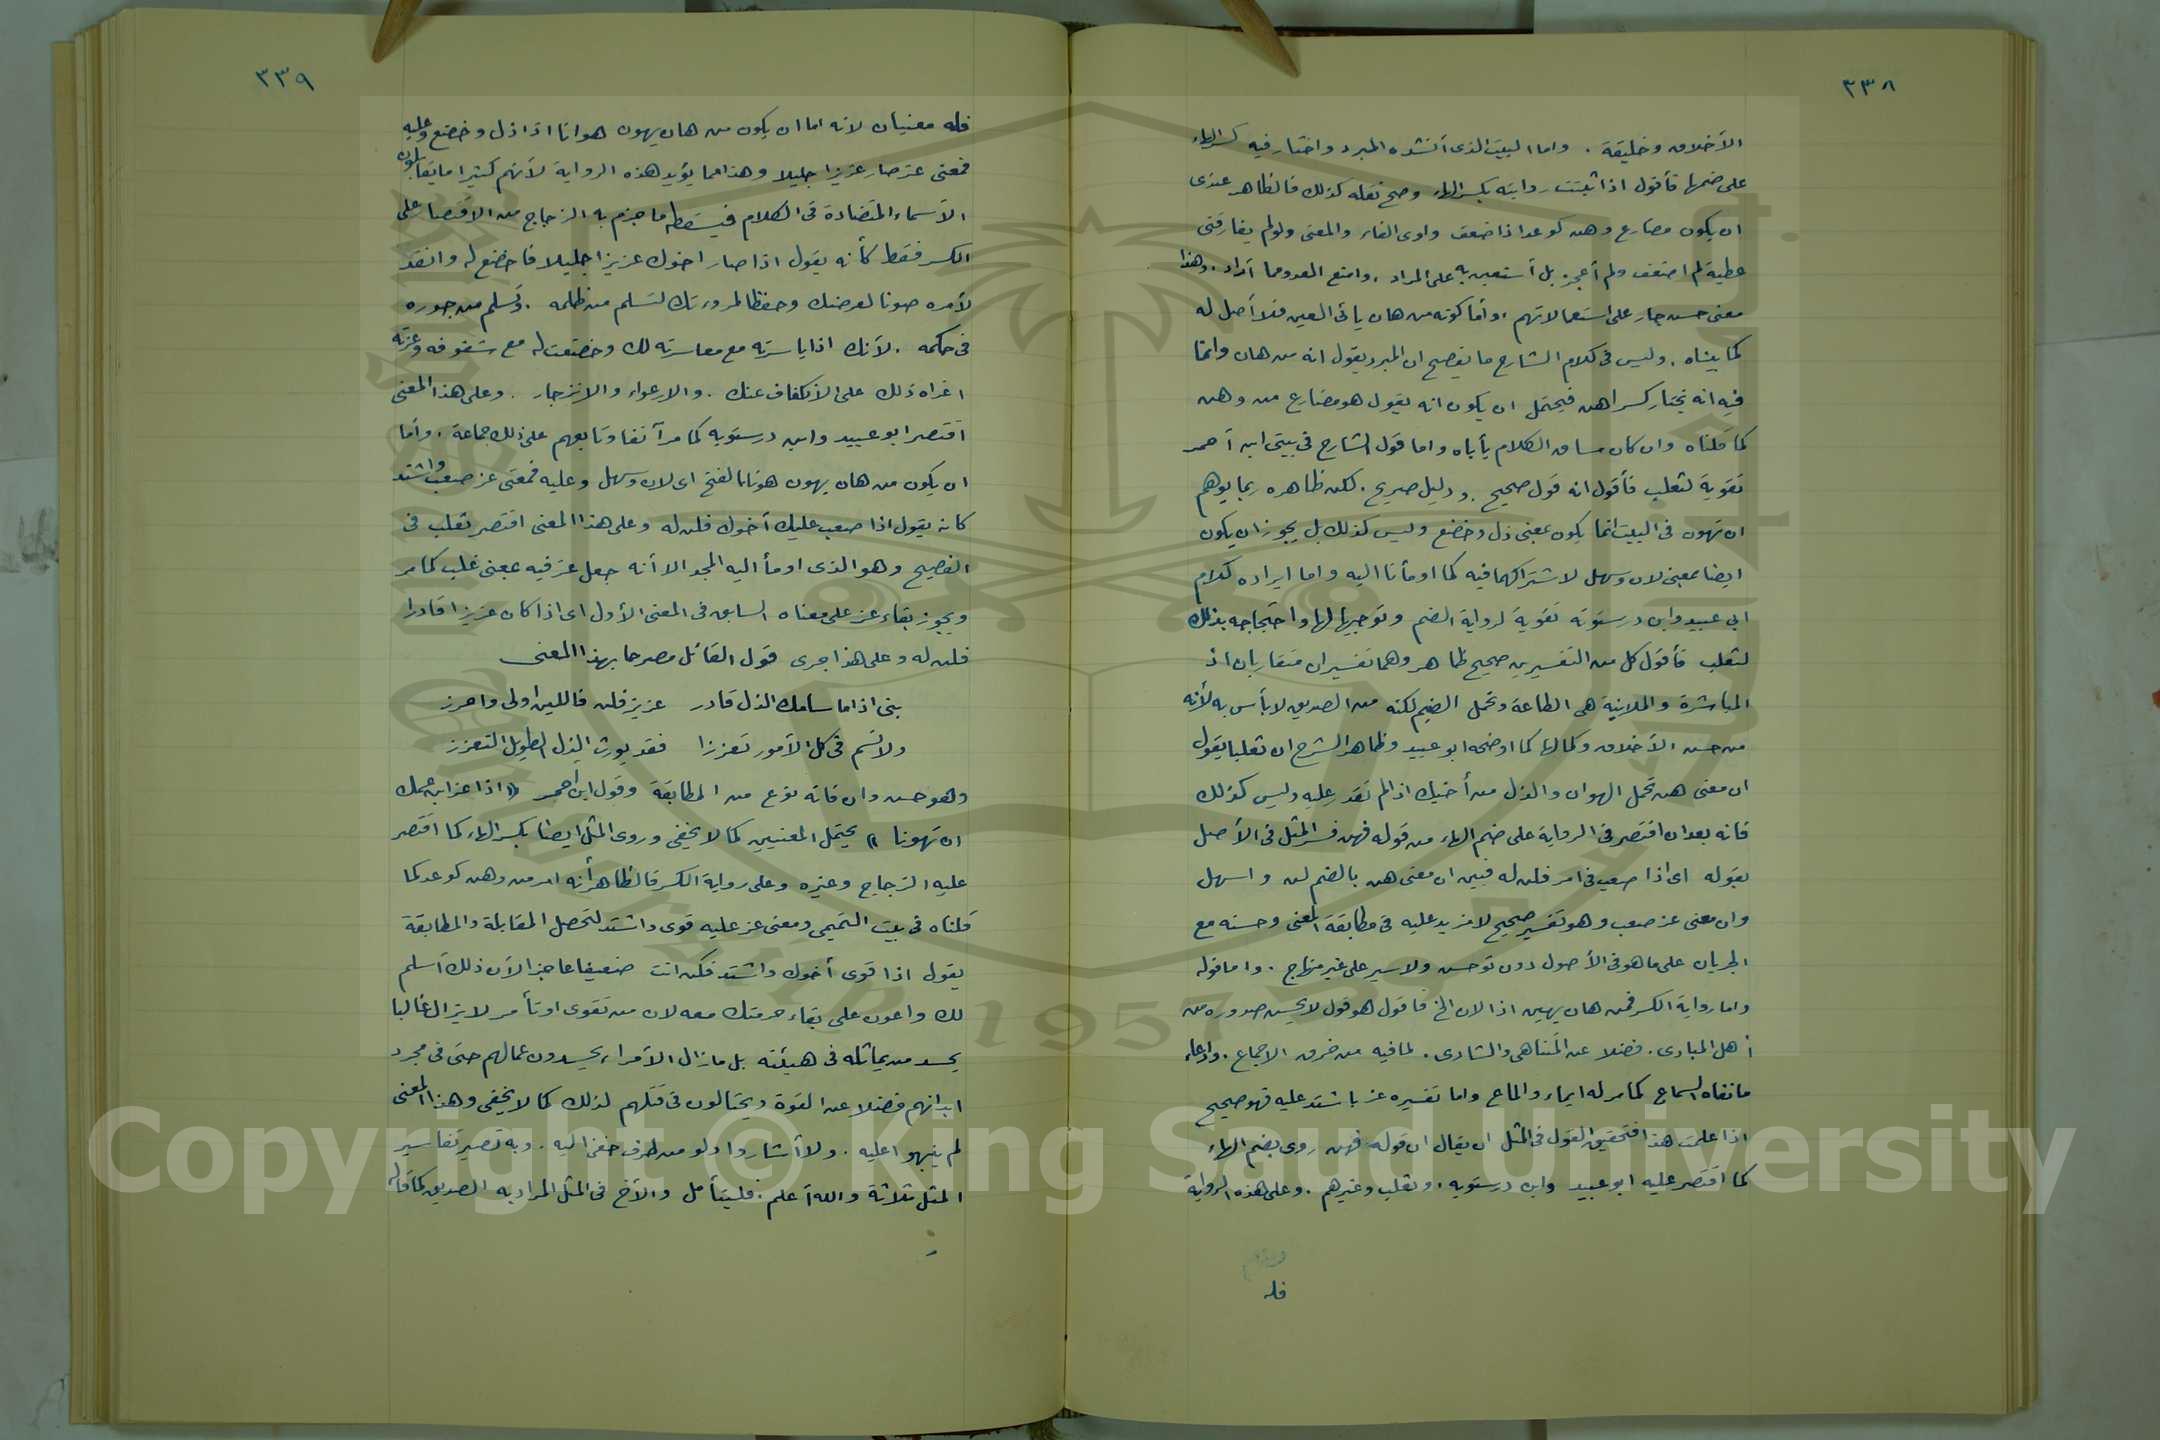 ٣٣٨
الأخلاق وخليقة . واما البيت الذى أنشده المبرد واختار فيه كسر الهاء
على ضمها فأقول اذا ثبتت روايته بكسر الهاء وصح نقله كذلك فالظاهر عندى
ان يكون مضارع وهن كوعد اذا ضعف واوى الفاء والمعنى ولو لم يفارقنى
عطية لم اضعف ولم أعجز بل أستعين به على المراد . وامتع العدو ما أراد . وهذا
معنى حسن جار على استعمالاتهم . وأما كونه من هان يائى العين فلا أصل له
كما بيناه . وليس فى كلام الشارح ما يفصح ان المبرد يقول انه من هان وانما
فيه انه يختار كسر اهن فيحتمل ان يكون انه يقول هو مضارع من وهن
كما قلناه وان كان مساق الكلام يأباه واما قول الشارح فى بيتى ابن أحمر
تقوية لثعلب فأقول انه قول صحيح . ودليل صريح . لكن ظاهره ربما يوهم
ان تهون فى البيت انما يكون بمعنى ذل وخضع وليس كذلك بل يجوز ان يكون
ايضا بمعنى لان وسهل لاشتراكهما فيه كما اومأنا اليه واما ايراده كلام
ابى عبيد وابن درستويه تقوية لرواية الضم وتوجيها لها واحتجاجه بذلك
لثعلب فأقول كل من التفسيرين صحيح ظاهر وهما تفسيران متقاربان اذ
المباشرة والملاينة هى الطاعة وتحمل الضيم لكنه من الصديق لا بأس به لأنه
من حسن الأخلاق وكمالها كما اوضحه ابو عبيد وظاهر الشرح ان ثعلبا يقول
ان معنى هن تحمل الهوان والذل من أخيك اذا لم تقدر عليه وليس كذلك
فانه بعد ان اقتصر فى الرواية على ضم الهاء من قوله فهن فسر المثل فى الأصل
بقوله اى اذا صعب فى امر فلن له فبين ان معنى هن بالضم لن واسهل
وان معنى عز صعب وهو تفسير صحيح لا مزيد عليه فى مطابقة المعنى وحسنه مع
الجريان على ما هو فى الأصول دون توحس ولا سير على غير منهاج . واما قوله
واما رواية الكسر فمن هان يهين اذا لان الخ فأقول هو قول لا يحسن صدوره من
أهل المبادى . فضلا عن المتناهى والشادى . لما فيه من خرق الاجماع . وادعاء
ما نفاه السماع كما مر له ايماء والماع واما تفسيره عز باشتد عليه فهو صحيح
اذا علمت هذا فتحقيق القول فى المثل ان يقال ان قوله فهن روى بضم الهاء
كما اقتصر عليه ابو عبيد وابن درستويه . وثعلب وغيرهم . وعلى هذه الرواية
فله
٣٣٩
فله معنيان لانه اما ان يكون من هان يهون هوانا اذا ذل وخضع وعليه
فمعنى عز صار عزيزا جليلا وهذا مما يؤيد هذه الرواية لأنهم كثيرا ما يقابلون
الأسماء المتضادة فى الكلام فيسقط ما جزم به الزجاج من الاقتصار على
الكسر فقط كأنه يقول اذا صار اخوك عزيزا جليلا فاخضع له وانقد
لأمره صونا لعرضك وحفظا لمروءتك لتسلم من ظلمه . وتسلم من جوره
فى حكمه . لأنك اذا ياسرته مع معاسرته لك وخضعت له مع شفوفه وعزته
اغراه ذلك على الانكفاف عنك . والارعواء والانزجار . وعلى هذا المعنى
اقتصر ابو عبيد وابن درستويه كما مر آنفا وتابعهم على ذلك جماعة . وأما
ان يكون من هان يهون هونا بالفتح اى لان وسهل وعليه فمعنى عز صعب واشتد
كانه يقول اذا صعب عليك أخوك فلن له وعلى هذا المعنى اقتصر ثعلب فى
الفصيح وهو الذى اومأ اليه المجد الا أنه جعل عز فيه بمعنى غلب كما مر
ويجوز بقاء عز على معناه السابق فى المعنى الأول اى اذا كان عزيزا قادرا
فلن له وعلى هذا جرى قول القائل مصرحا بهذا المعنى
بنى اذا ما سامك الذل قادر عزيز فلن فاللين اولى واحرز
ولا تسم فى كل الأمور تعززا فقد يورث الذل الطويل التعزز
وهو حسن وان فاته نوع من المطابقة وقول ابن أحمر « اذا عز ابن عمك
ان تهونا » يحتمل المعنيين كما لا يخفى وروى المثل ايضا بكسر الهاء كما اقتصر
عليه الزجاج وغيره وعلى رواية الكسر فالظاهر أنه امر من وهن كوعد كما
قلناه فى بيت التميمى ومعنى عز عليه قوى واشتد لتحصل المقابلة والمطابقة
يقول اذا قوى أخوك واشتد فكن انت ضعيفا عاجزا لأن ذلك أسلم
لك واعون على بقاء حرمتك معه لان من تقوى او تأمر لا يزال غالبا
يحسد من يماثله فى هيئته بل مازال الأمراء يحسدون عمالهم حتى فى مجرد
ابدانهم فضلا عن القوة ويحتالون فى قتلهم لذلك كما لا يخفى وهذا المعنى
لم ينبهوا عليه . ولا أشاروا ولو من طرف خفى اليه . وبه تصير تفاسير
المثل ثلاثة والله أعلم . فليتأمل والأخ فى المثل المراد به الصديق كما قاله
Copyright © King Saud University
1957